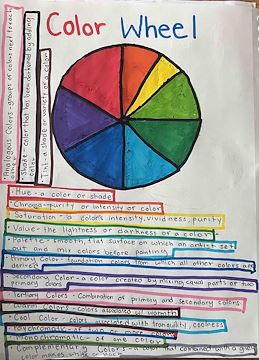 Color Wheel
Analogous Colors - groups of colors next to each
other
Shade - color that has been darkened by adding
Tint - a shade or variety of a color
Hue - a color or shade
Chroma - purity or intensity of color
Saturation - a color's intensity, vividness, purity
Value - the lightness or darkness of a color
Palette - smooth, flat surface on which an artist set
out and mix colors before painting
Primary Color - foundation colors from which all other colors are
derived
Secondary Color - a color created by mixing equal parts or two
primary colors
Tertiary Colors - Combination of primary and secondary colors
Warm Colors - colors associated w/ warmth
Cool Color - color associated with tranquility, coolness
Polychromatic - of two
Monochromatic - of one color
Complementary Colors - is a color that combined with a given